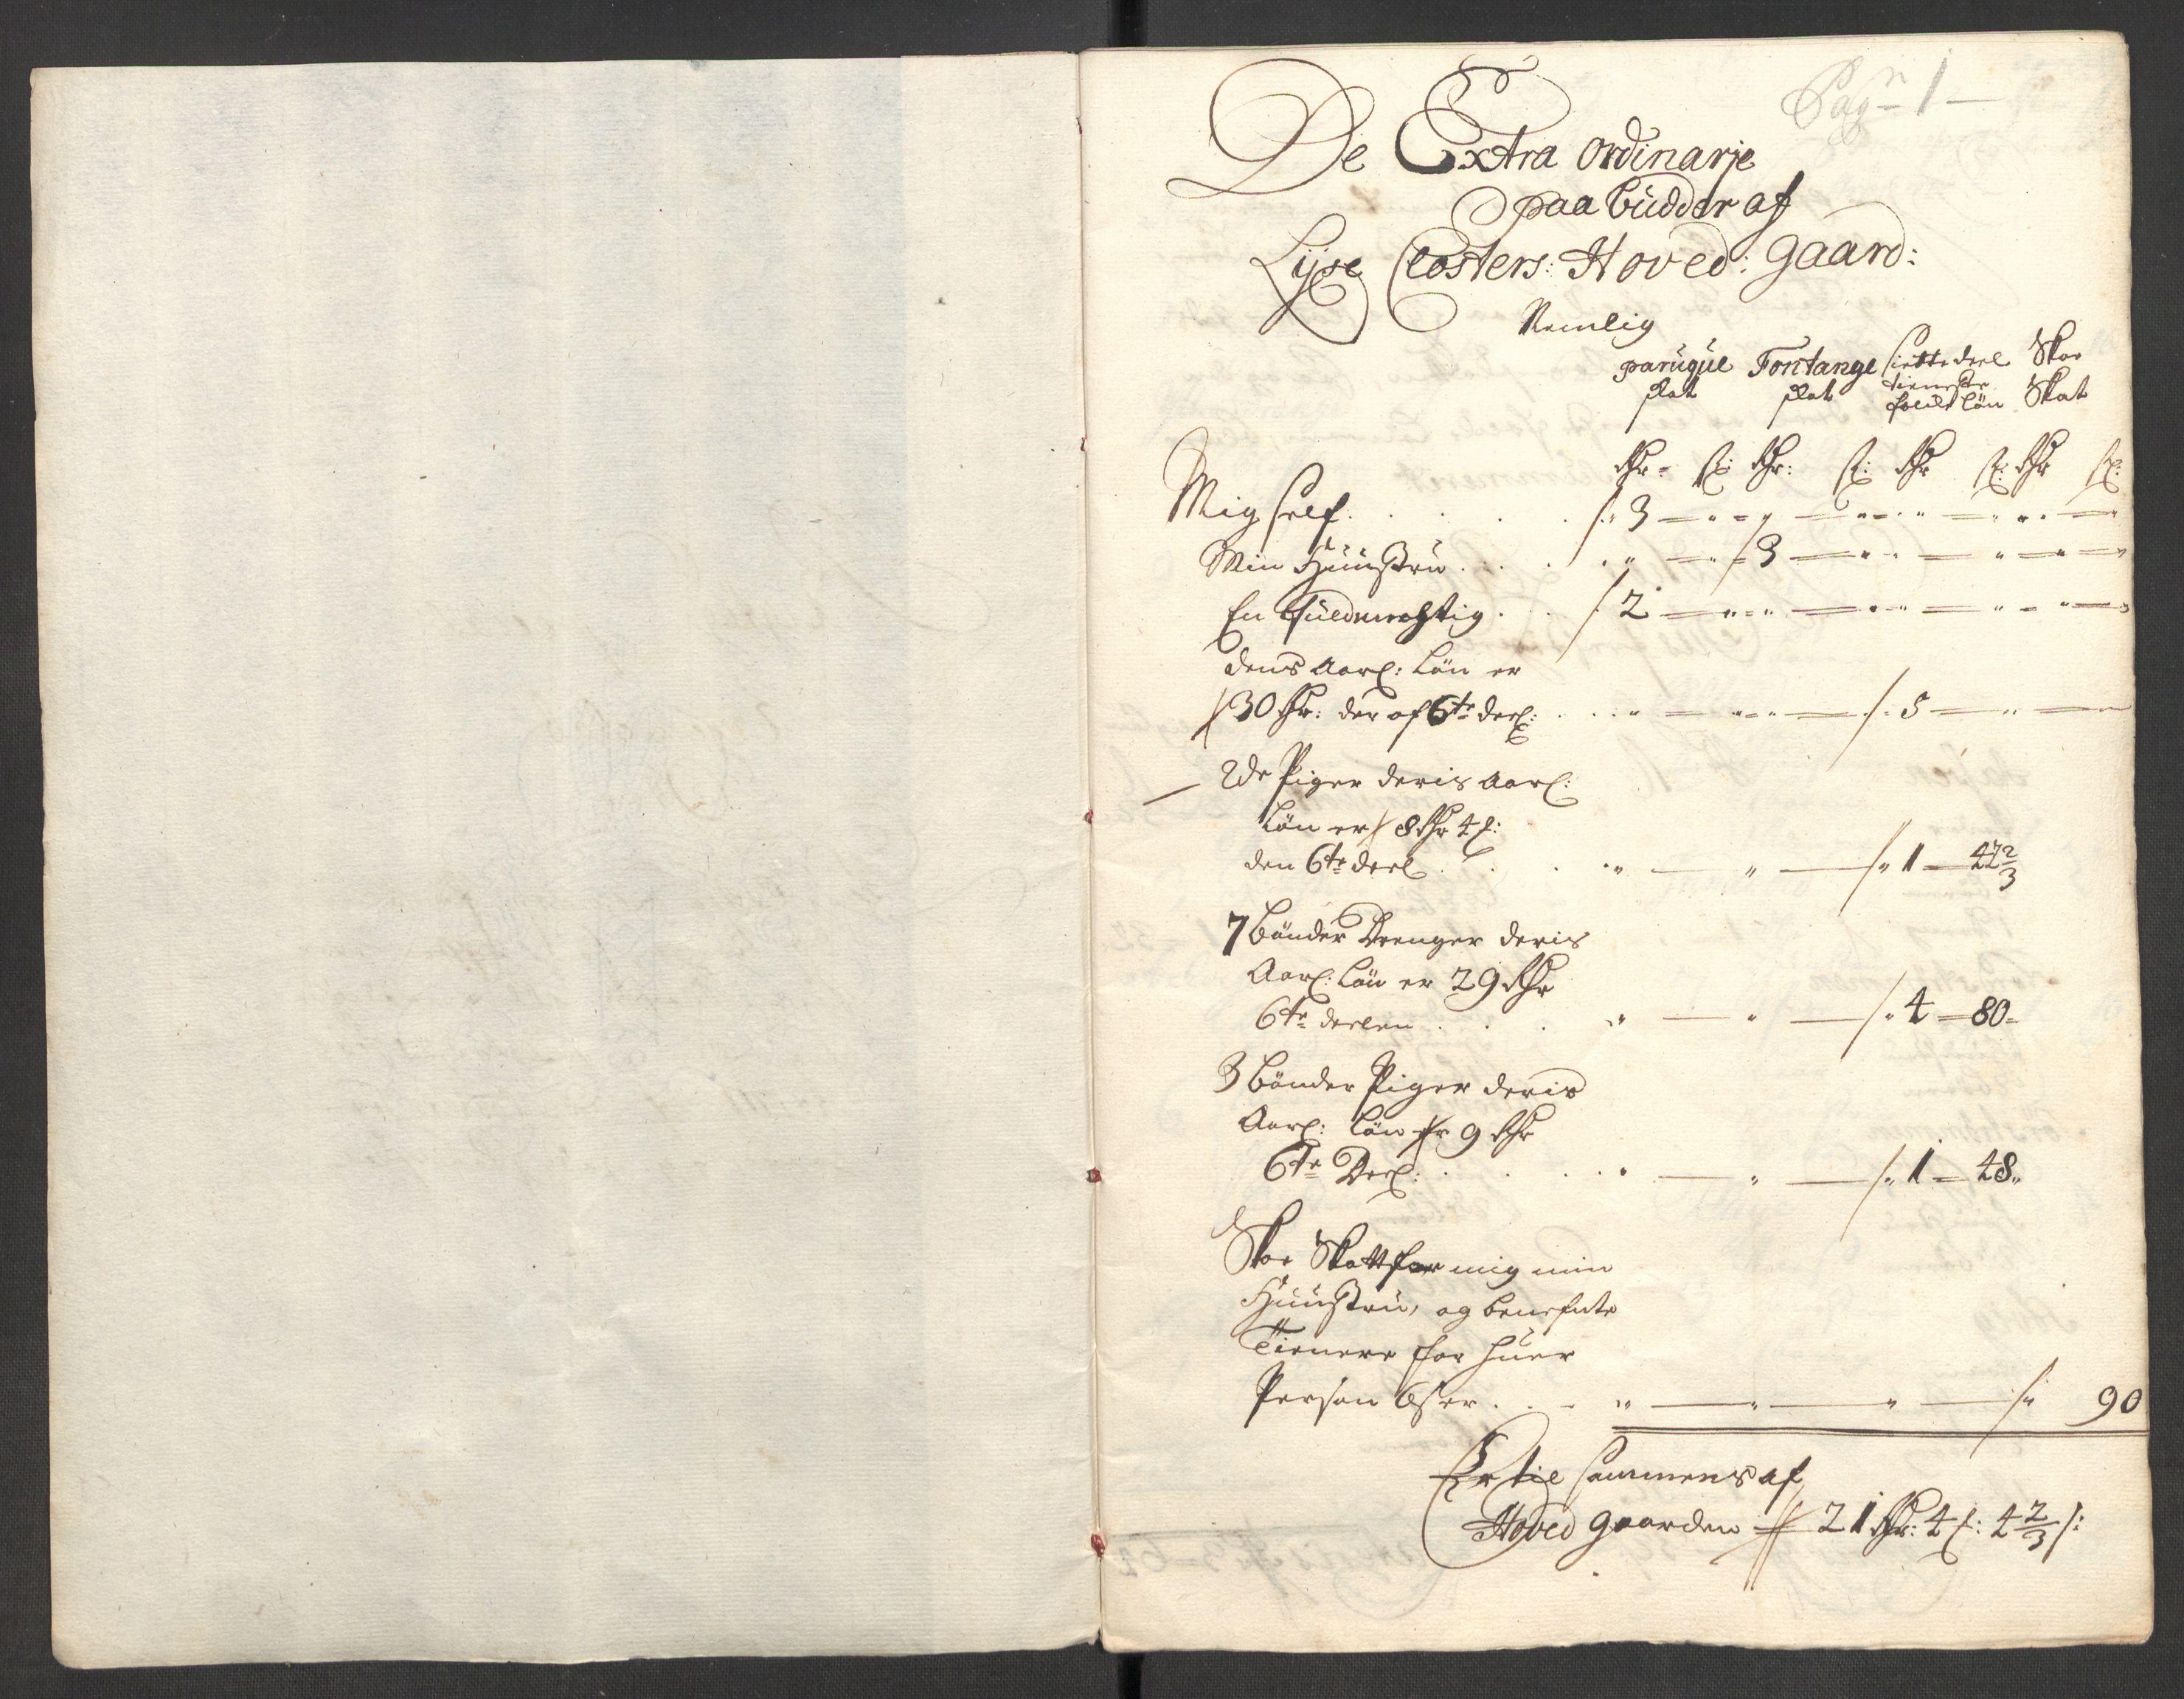 Pagn 1
De Extra Ordinarie
paabudder af
Lyse Closters: Hoved: gaard:
Nemlig
paruque Fontange Siette deel Skoe
skat skat tieniste Skat
folckes Løn
Rdr: ß: Rdr: ß: Rdr ß: Rdr ß:
Mig self . . . . 3 — " — " — " — " — " — "
Min Huustru . . . " — " — 3 — " — " — " — " — "
En fuldmegtig . . . 2 — " — " — " — " — " — "
dens Aarl: Løn er
30 Rdr: der af 6te deel: . . . " — " — " — 5 — " — "
2de Piger deris Aarl:
Løn er 8 Rdr 4 ß:
den 6te deel . . . " — " — 1 — 42 2/3
7 bønder Drenger deris
Aarl: Løn er 29 Rdr
6te deelen . . . " — " — 4 — 80
3 bønder Piger deris
Aarl: Løn er 9 Rdr
6te Deel: . . . " — " — 1 — 48
Skoe Skatt for mig min
Huustru, og benefnte
Tienere for huer
Person 6 ß er . . . " — " — " — 90
Er tilsammens af
Hoved gaarden 21 Rdr: 4 ß: 4 2/3 ß: